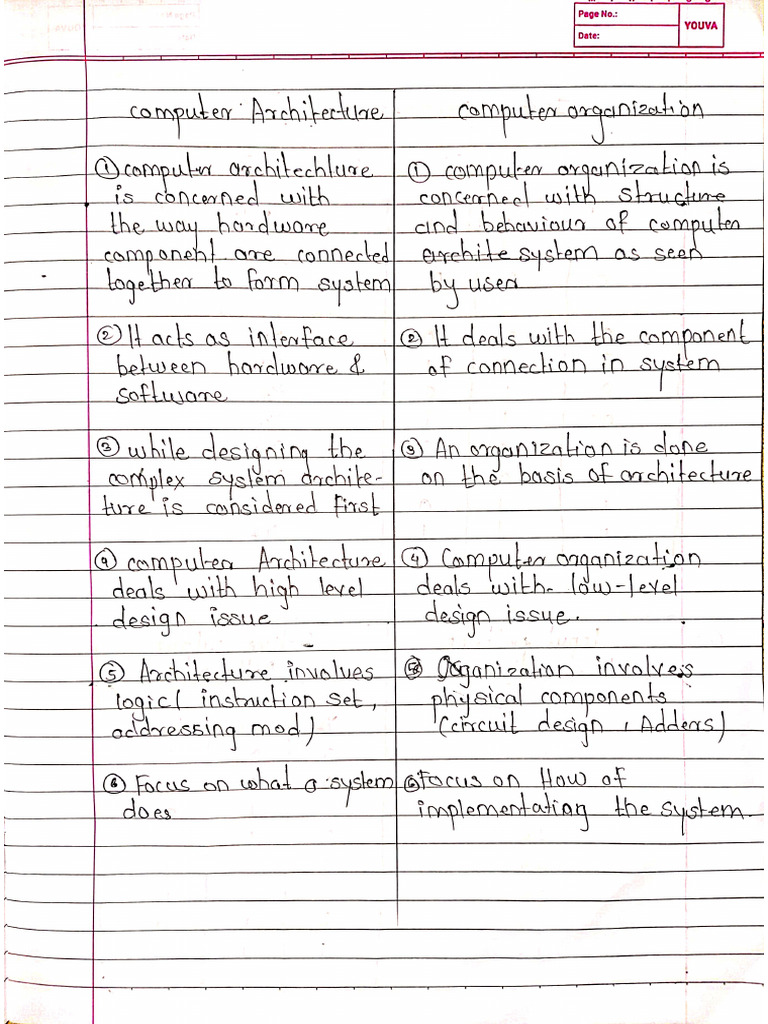 Page No.:
Date:
YOUVA
computer Architecture
① computer architechture
is concerned with
the way hardware
component are connected
together to form system
② It acts as interface
between hardware &
software
③ while designing the
complex system archite-
ture is considered first
④ computer Architecture
deals with high level
design issue
⑤ Architecture involves
logic ( instruction set,
addressing mod )
⑥ Focus on what a system
does
computer organization
① computer organization is
concerned with structure
and behaviour of computer
archite system as seen
by user
② It deals with the component
of connection in system
③ An organization is done
on the basis of architecture
④ Computer organization
deals with low-level
design issue.
⑤ Organization involves
physical components
(circuit design , Adders)
⑥ Focus on How of
implementating the system.